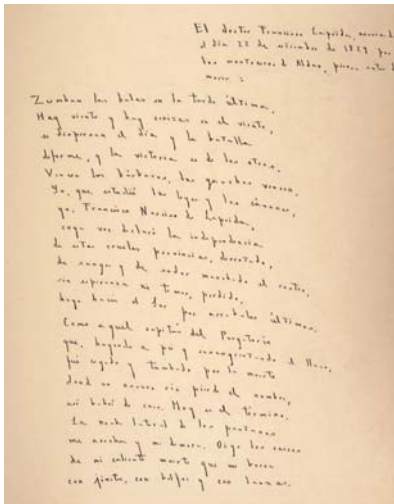 El doctor Francisco Laprida, asesinad
el día 22 de setiembre de 1829 por
los montoneros de Aldao, piensa antes de
morir:
Zumban las balas en la tarde última.
Hay viento y hay cenizas en el viento,
se dispersan el día y la batalla
deforme, y la victoria es de los otros.
Vencen los bárbaros, los gauchos vencen.
Yo, que estudié las leyes y los cánones,
yo, Francisco Narciso de Laprida,
cuya voz declaró la independencia
de estas crueles provincias, derrotado,
de sangre y de sudor manchado el rostro,
sin esperanza ni temor, perdido,
huyo hacia el Sur por arrabales últimos.
Como aquel capitán del Purgatorio
que, huyendo a pié y ensangrentando el llano,
fué cegado y tumbado por la muerte
donde un oscuro río pierde el nombre,
así habré de caer. Hoy es el término.
La noche lateral de los pantanos
me acecha y me demora. Oigo los cascos
de mi caliente muerte que me busca
con jinetes, con belfos y con lanzas.